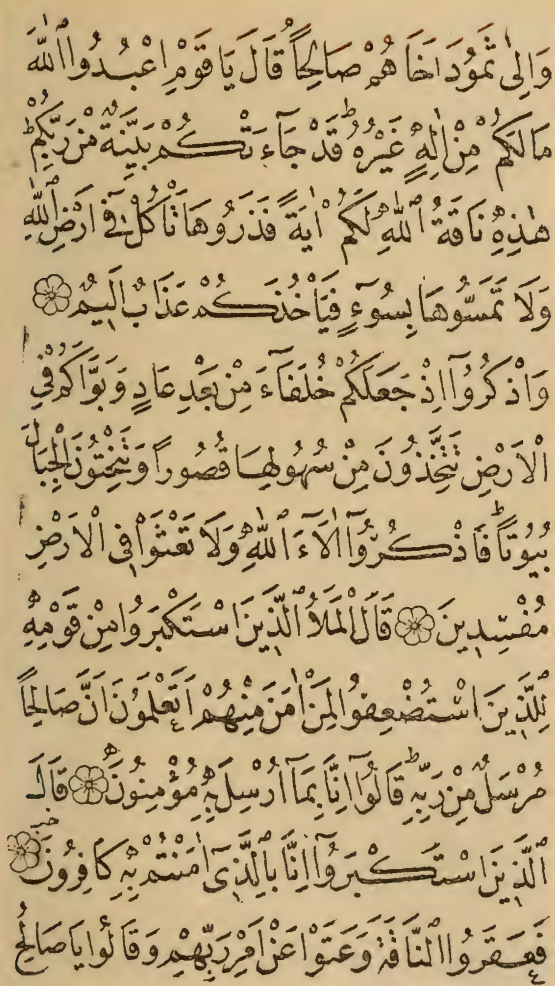 وَاِلٰى ثَمُودَ اَخَاهُمْ صَالِحاً قَالَ يَا قَوْمِ اعْبُدُوا اللّٰهَ
مَا لَكُمْ مِنْ اِلٰهٍ غَيْرُهُ قَدْ جَآءَتْكُمْ بَيِّنَةٌ مِنْ رَبِّكُمْ
هٰذِهِ نَاقَةُ اللّٰهِ لَكُمْ اٰيَةً فَذَرُوهَا تَاْكُلْ فٓى اَرْضِ اللّٰهِ
وَلَا تَمَسُّوهَا بِسُوٓءٍ فَيَاْخُذَكُمْ عَذَابٌ اَلِيمٌ
وَاذْكُرُوٓا اِذْ جَعَلَكُمْ خُلَفَآءَ مِنْ بَعْدِ عَادٍ وَبَوَّاَكُمْ فِى
الْاَرْضِ تَتَّخِذُونَ مِنْ سُهُولِهَا قُصُوراً وَتَنْحِتُونَ الْجِبَالَ
بُيُوتاً فَاذْكُرُوٓا اٰلَآءَ اللّٰهِ وَلَا تَعْثَوْا فِى الْاَرْضِ
مُفْسِدِينَ قَالَ الْمَلَاُ الَّذِينَ اسْتَكْبَرُوا مِنْ قَوْمِهِ
لِلَّذِينَ اسْتُضْعِفُوا لِمَنْ اٰمَنَ مِنْهُمْ اَتَعْلَمُونَ اَنَّ صَالِحاً
مُرْسَلٌ مِنْ رَبِّهِ قَالُوٓا اِنَّا بِمَآ اُرْسِلَ بِهِ مُؤْمِنُونَ قَالَ
الَّذِينَ اسْتَكْبَرُوٓا اِنَّا بِالَّذِىٓ اٰمَنْتُمْ بِهِ كَافِرُونَ
فَعَقَرُوا النَّاقَةَ وَعَتَوْا عَنْ اَمْرِ رَبِّهِمْ وَقَالُوا يَا صَالِحُ